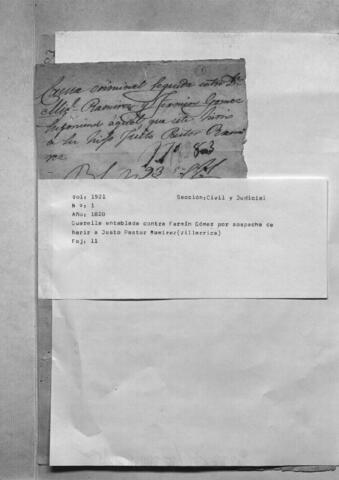 Causa criminal seguida entre Dn
Migl. Ramirez y Fermin Gomez
a su hijo Justo Pastor Rami
rez
Vol: 1921 Sección: Civil y Judicial
Nº: 1
Año: 1820
Querella entablada contra Fermín Gómez por sospecha de
herir a Justo Pastor Ramírez(Villarrica)
Foj: 11